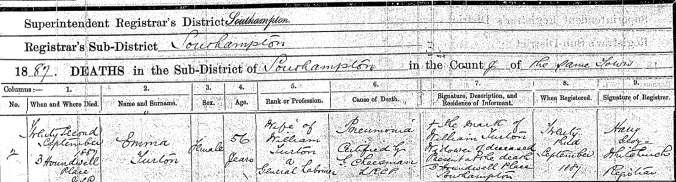 Superintendent Registrar's District Southampton
Registrar's Sub-District Southampton
1887. DEATHS in the Sub-District of Southampton in the County of the same Town
Columns:— 1. 2. 3. 4. 5. 6. 7. 8. 9.
No. When and Where Died. Name and Surname. Sex. Age. Rank or Profession. Cause of Death. Signature, Description, and Residence of Informant. When Registered. Signature of Registrar.
2
Twenty Second
September
1887
3 Houndwell
Place
Emma
Turton
Female
56
Years
Wife of
William
Turton
a
General Labourer
Pneumonia
Certified by
G. Cheesman
X the mark of
William Turton
Widower of deceased
Present at the death
3 Houndwell Place
Southampton
Twenty
third
September
1887
Harry
George
Whitchurch
Registrar